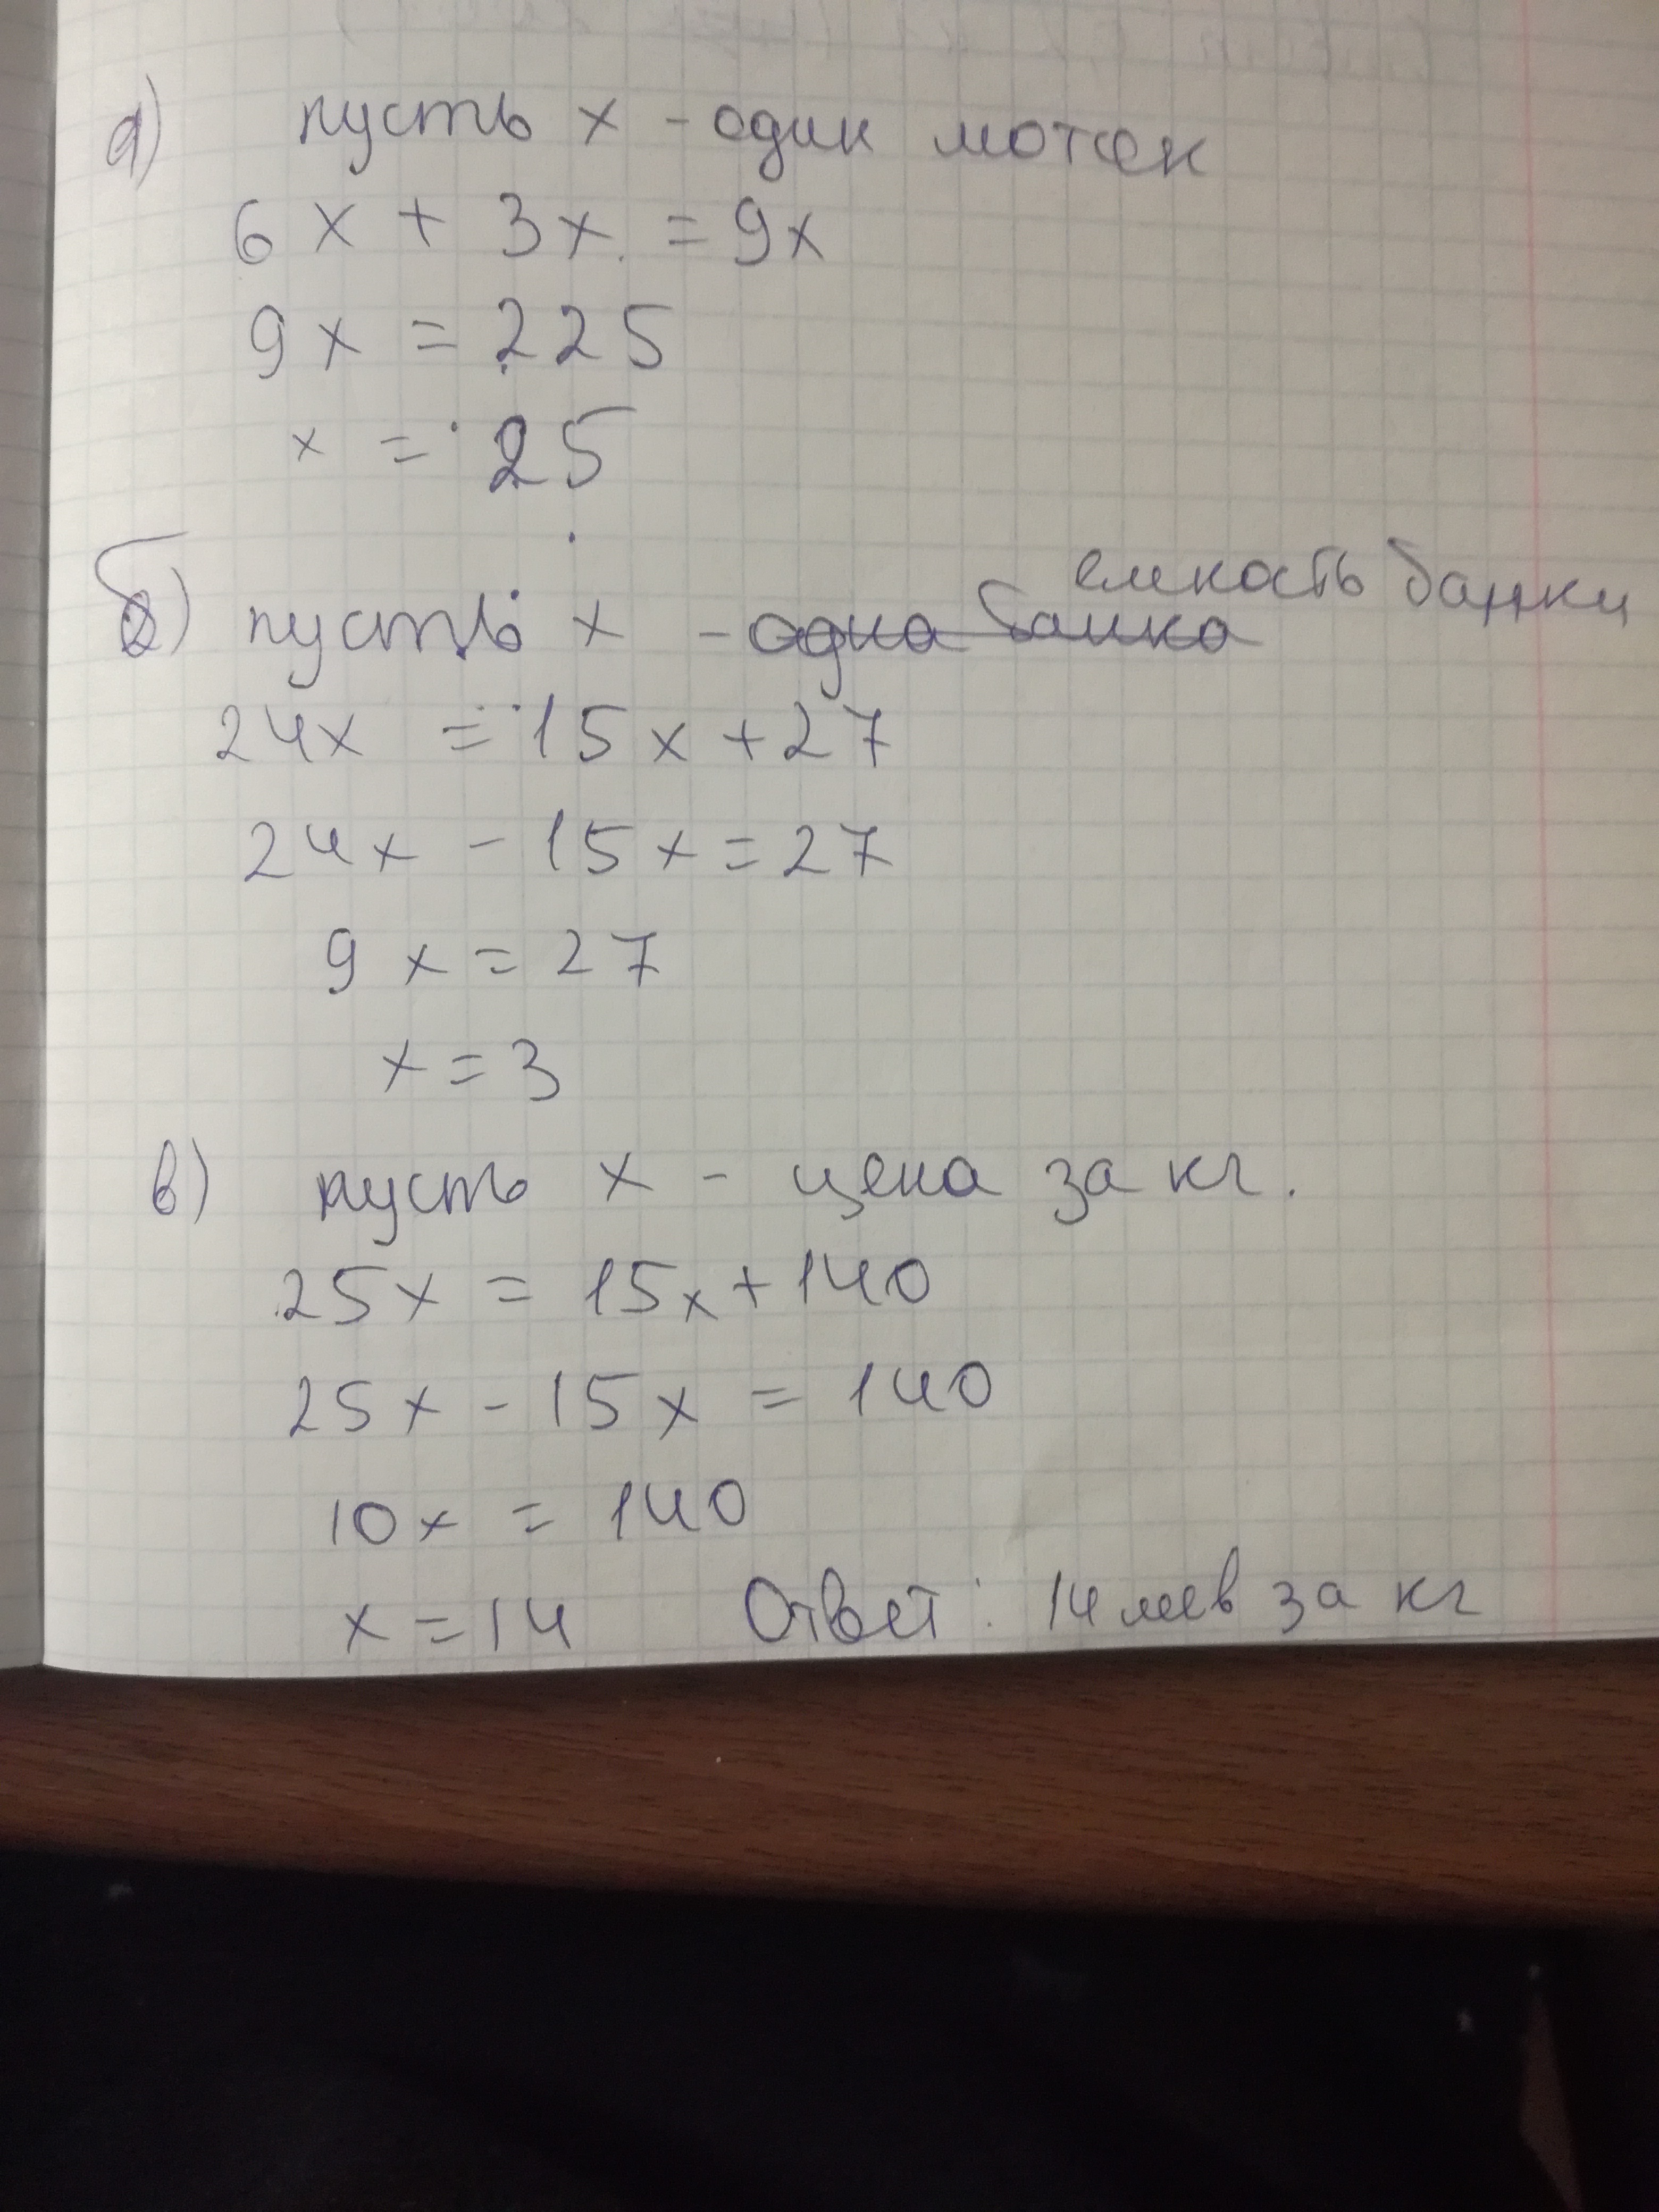 а) пусть x - один моток
6x + 3x = 9x
9x = 225
x = 25
б) пусть x - одна банка емкость банки
24x = 15x + 27
24x - 15x = 27
9x = 27
x = 3
в) пусть x - цена за кг.
25x = 15x + 140
25x - 15x = 140
10x = 140
x = 14 Ответ: 14 лев за кг